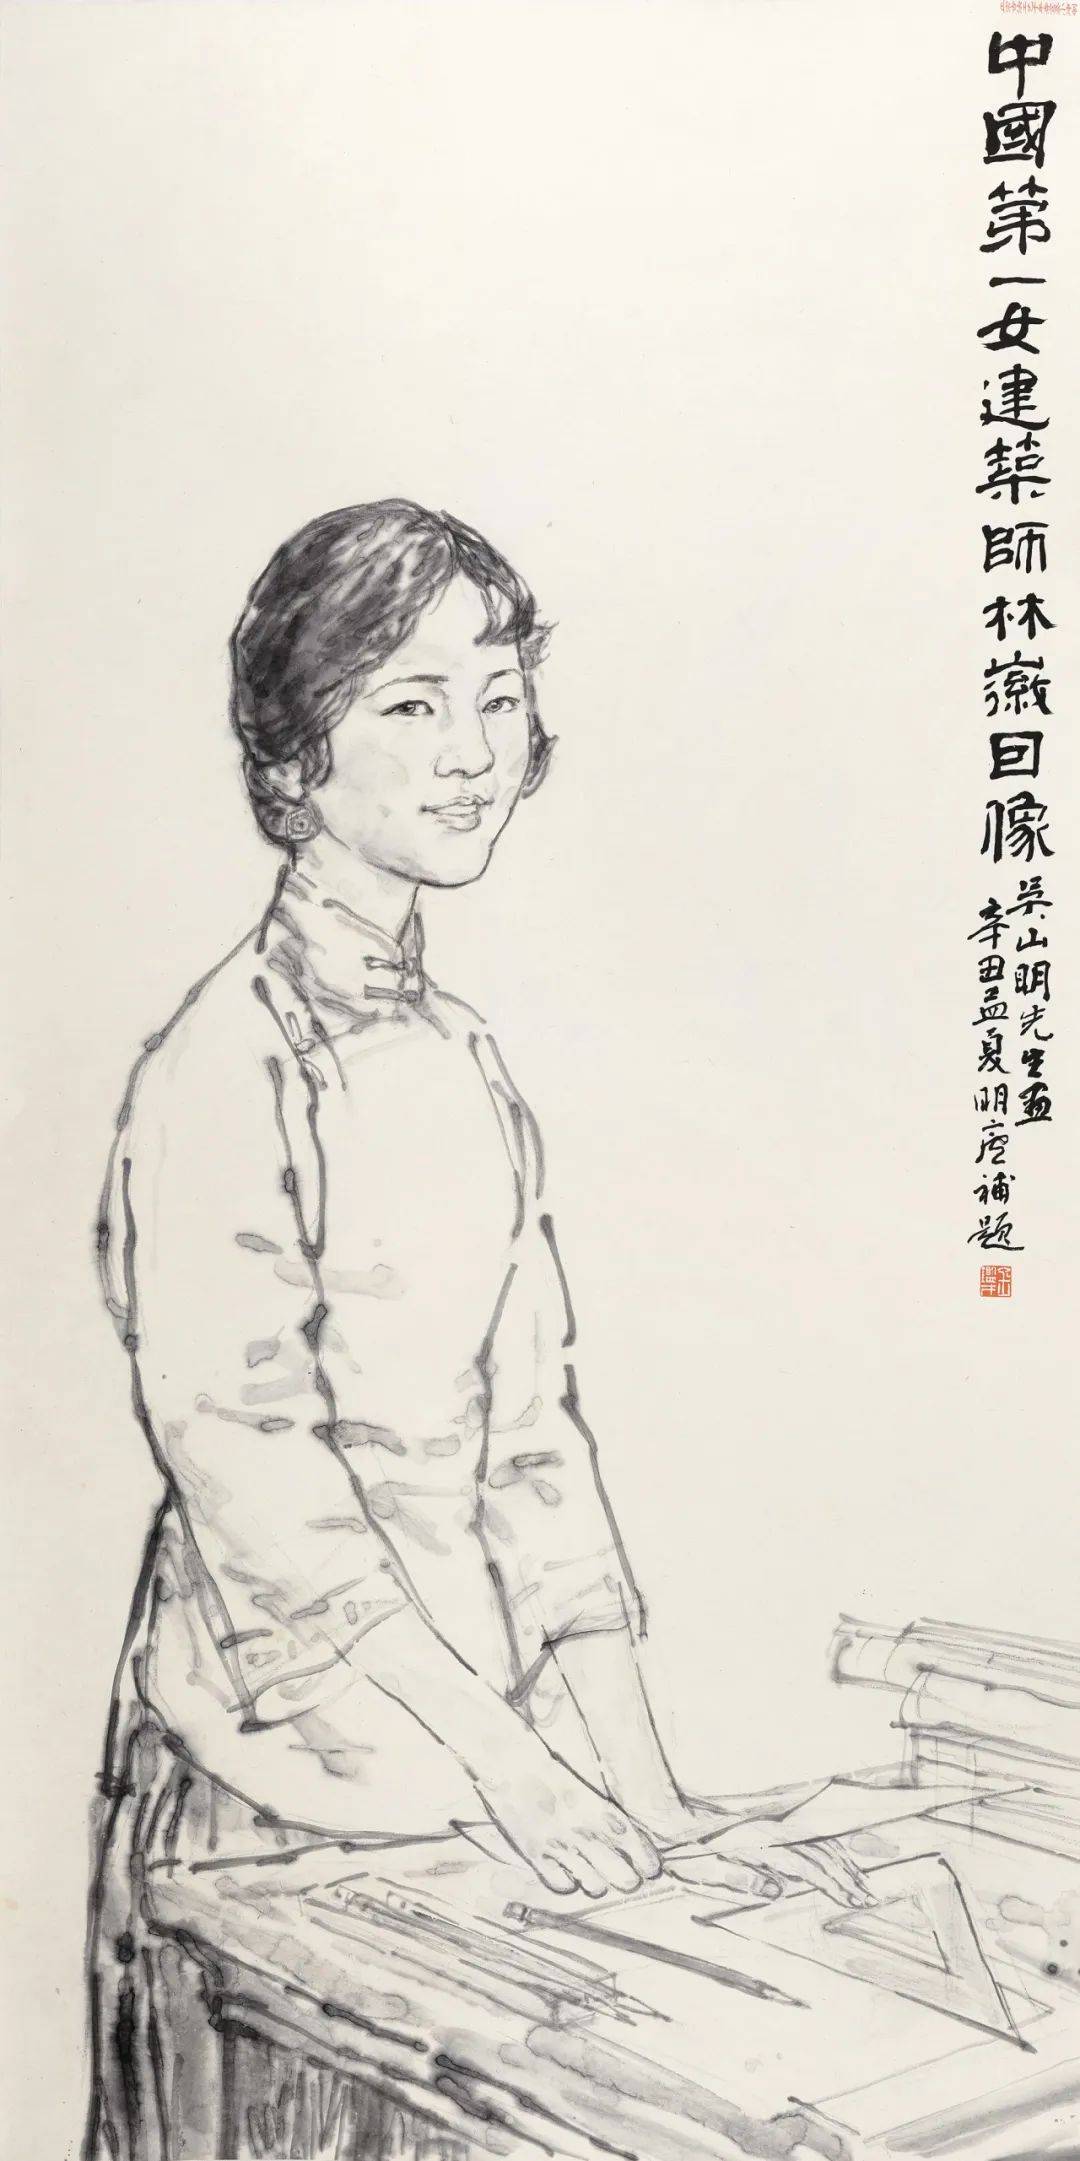 中國第一女建築師林徽因像
吳山明先生畫
辛丑孟夏明庐補題